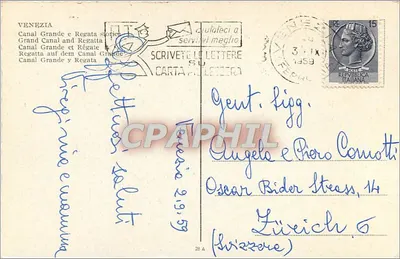 VENEZIA
Canal Grande e Regata storica
Grand Canal and Regatta
Canal Grande et Régate
Regatta auf dem Canal Grande
Canal Grande y Regata
aiutateci a
servirvi meglio
SCRIVETE LE LETTERE
SU
CARTA
VENEZIA
1959
15
Affettuosi saluti
Venezia 2.9.59
Gent. Sigg.
Angela e Piero Comotti
Oscar Bider Strass, 14
Zürich 6
(Svizzera)
CPAPHIL